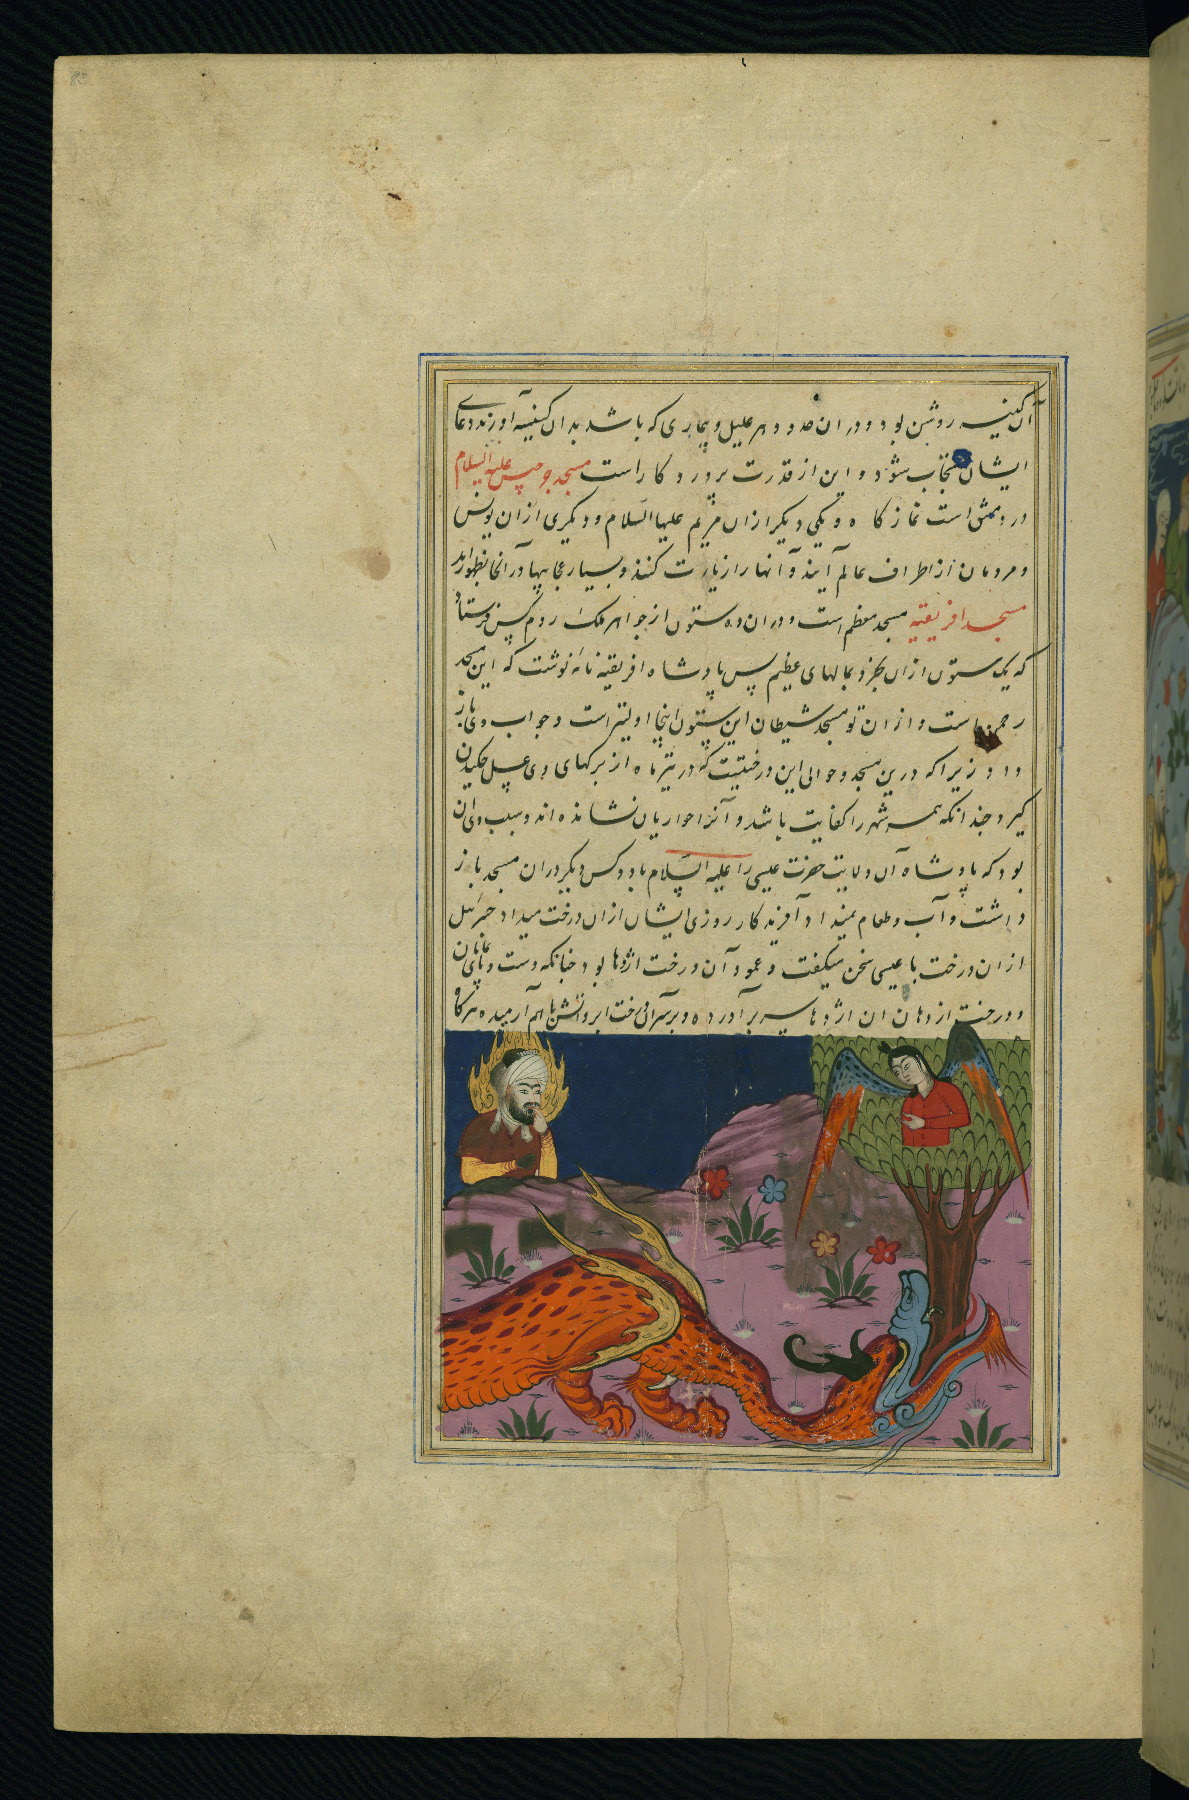 آن کنیسه روشن بود و در ان حدود هر علیل و بیماری که باشد بدان کنیسه آورند دعای
ایشان مستجاب شود و این از قدرت پروردکارست مسجد جرجیس علیه السلام
در دمشق است نمازکاه و یکی دیکر ازان مریم علیها السلام و دیکری ازان یونس
و مردمان از اطراف عالم آیند و آنها را زیارت کنند و بسیار عجایبها در آنجا بظهور اید
مسجد افریقیه مسجد معظم است و در ان ده ستون از جواهر ملک روم کس فرستاد
که یک ستون ازان بخرد بمالهای عظیم پس پادشاه افریقیه نامه نوشت که این مسجد
رحمن است و از ان تو مسجد شیطان این ستون اینجا اولیتر است و جواب وی باز
داد زیرا که درین مسجد و حوالی این درختیست که در تیر ماه از برکهای وی عسل چکیدن
کیرد چندانکه همه شهر را کفایت باشد و آنرا حواریان نشانده اند و سبب وی ان
بود که پادشاه آن ولایت حضرت عیسی را علیه السلام با دو کس دیکر در ان مسجد باز
داشت و آب و طعام نمیداد آفریدکار روزی ایشان ازان درخت میداد جبرئیل
از ان درخت با عیسی سخن میکفت و عمود آن درخت اژدها بود چنانکه دست و پای
و درخت از دهان ان اژدها سر برآورده و بر سر آن درخت ابر و آتش با هم آرمیده هرکاه
85